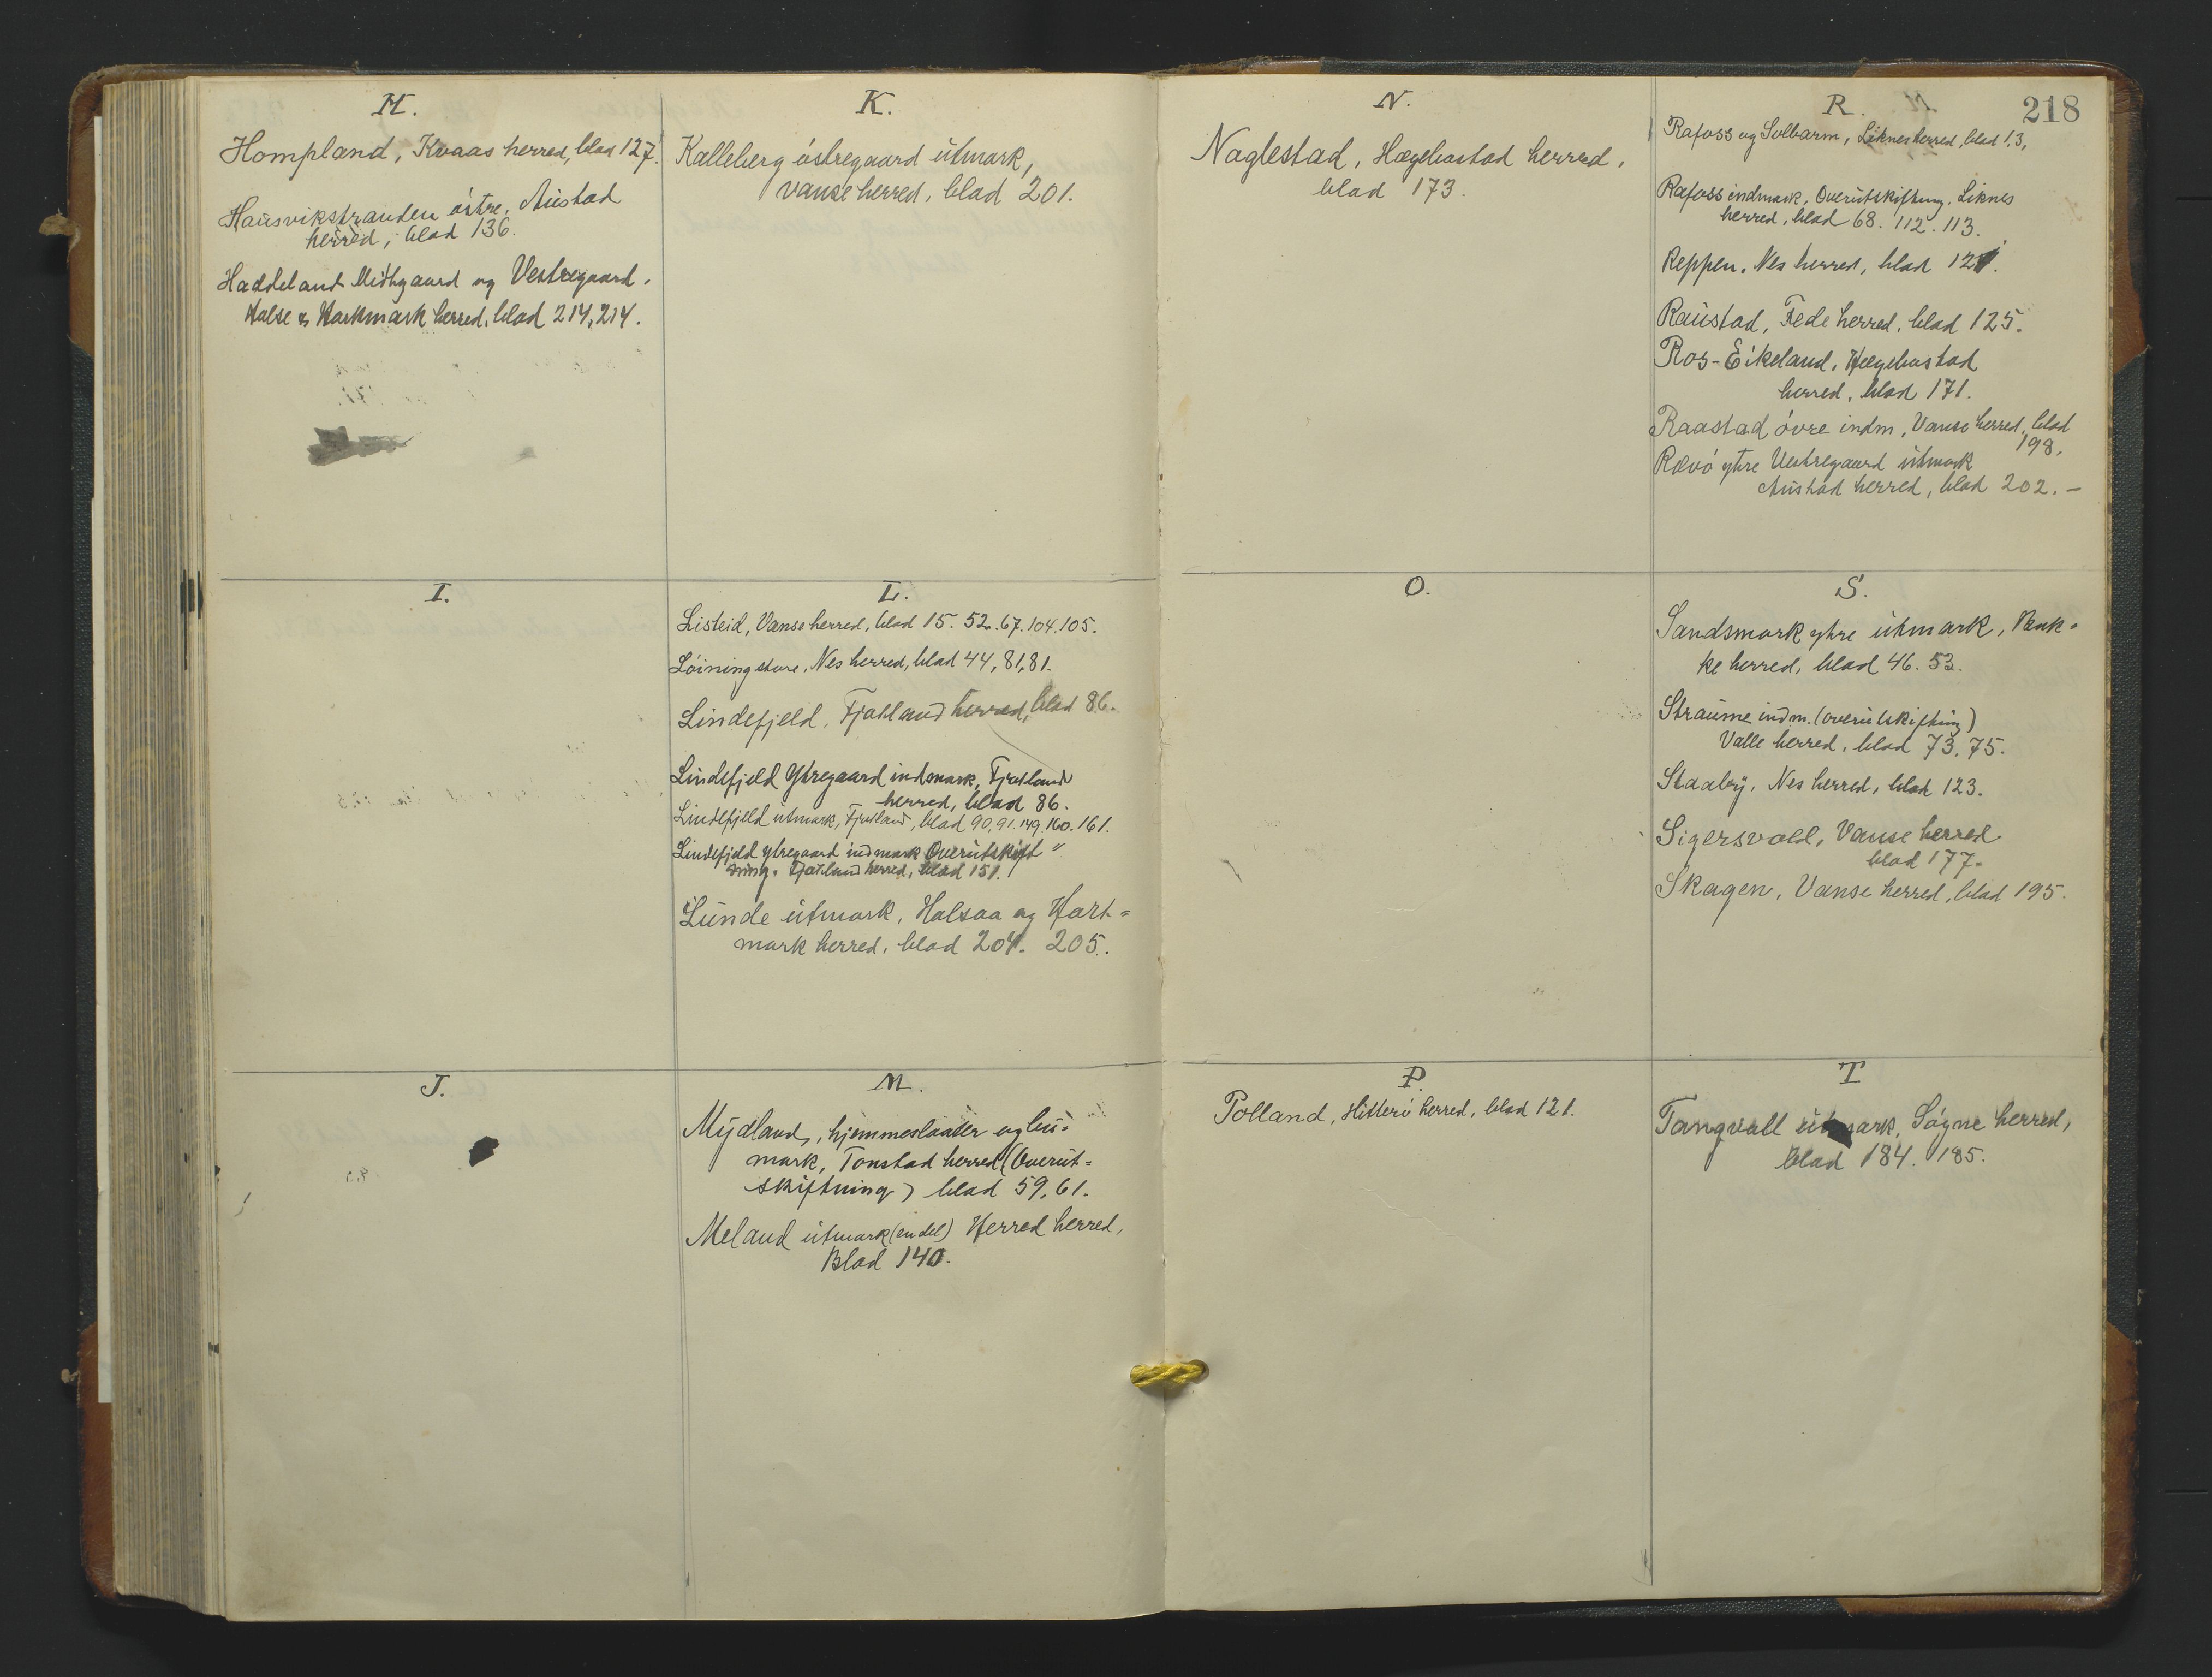 H.
Hompland, Kvaas herred, blad 127.
Hausvikstranden östre, Austad
herred, blad 136.
Haddeland Midtgaard og Vestregaard.
Halse & Harkmark herred, blad 214, 214.
I.
J.
K.
Kalleberg östregaard utmark,
Vanse herred, blad 201.
L.
Listeid, Vanse herred, blad 15. 52. 67. 104. 105.
Löining store, Nes herred, blad 44, 81, 81.
Lindefjeld, Fjotland herred, blad 86.
Lindefjeld Ytregaard indmark, Fjotland
herred, blad 86.
Lindefjeld utmark, Fjotland, blad 90, 91. 149. 160. 161.
Lindefjeld ytregaard indmark Overutskift "
ning. Fjotland herred, blad 151.
Lunde utmark, Halsaa og Hart=
mark herred, blad 204. 205.
M.
Mydland, hjemmeslaatter og bu=
mark, Tonstad herred (Overut=
skiftning) blad 59, 61.
Meland utmark (en del) Herred herred,
Blad 140.
N.
Naglestad, Hægebostad herred,
blad 173.
O.
P.
Polland, Hitterö herred, blad 121.
218
R.
Rafoss og Solbarm, Liknes herred, blad 1, 3,
Rafoss indmark, Overutskiftning. Liknes
herred, blad 68. 112. 113.
Reppen. Nes herred, blad 121.
Raustad, Fede herred, blad 125.
Ros-Eikeland, Hægebostad
herred, blad 171.
Raastad övre indm, Vanse herred, blad
198,
Rævö ytre Vestregaard utmark
Austad herred, blad 202. -
S.
Sandsmark ytre utmark, Bak=
ke herred, blad 46. 53.
Straume indm. (overutskiftning)
Valle herred, blad 73. 75.
Staaby, Nes herred, blad 123.
Sigersvold, Vanse herred
blad 177.
Skagen, Vanse herred, blad 195.
T
Tangvall utmark, Sögne herred,
blad 184. 185.